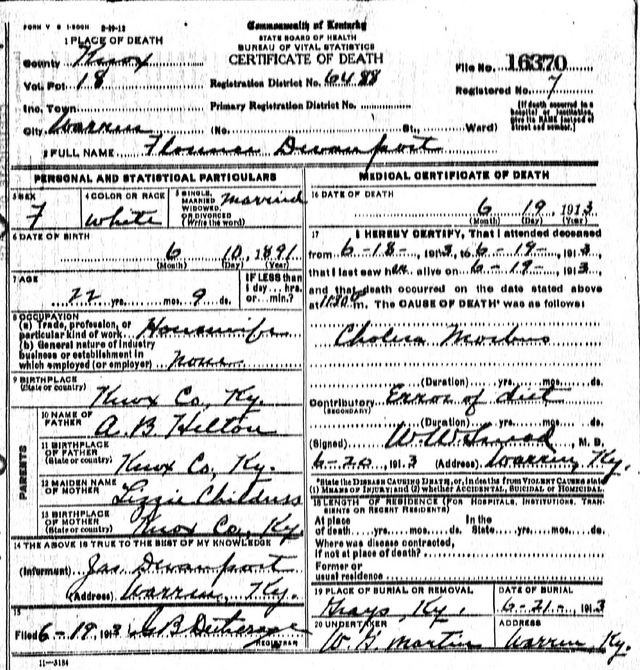 FORM V S 1-500M 8-19-12
Commonwealth of Kentucky
STATE BOARD OF HEALTH
BUREAU OF VITAL STATISTICS
CERTIFICATE OF DEATH
1 PLACE OF DEATH
County Knox
Vot. Pct 18
Inc. Town
City Warren (No. St. Ward)
Registration District No. 6488
Primary Registration District No.
File No. 16370
Registered No. 7
(If death occurred in a hospital or institution, give its NAME instead of street and number.)
2 FULL NAME Florence Devanport
PERSONAL AND STATISTICAL PARTICULARS
3 SEX F
4 COLOR OR RACE White
5 SINGLE, MARRIED, WIDOWED, OR DIVORCED (Write the word) Married
6 DATE OF BIRTH
6 10, 1891
(Month) (Day) (Year)
7 AGE
22 yrs. mos. 9 ds.
IF LESS than 1 day... hrs. or... min.?
8 OCCUPATION
(a) Trade, profession, or particular kind of work Housewife
(b) General nature of industry business or establishment in which employed (or employer) none
9 BIRTHPLACE
(State or country) Knox Co, Ky.
PARENTS
10 NAME OF FATHER A. B. Helton
11 BIRTHPLACE OF FATHER (State or country) Knox Co, Ky.
12 MAIDEN NAME OF MOTHER Lizzie Childress
13 BIRTHPLACE OF MOTHER (State or country) Knox Co, Ky
14 THE ABOVE IS TRUE TO THE BEST OF MY KNOWLEDGE
(Informant) Jas. Devanport
(Address) Warren, Ky.
15
Filed 6-19, 1913
REGISTRAR
11-3184
MEDICAL CERTIFICATE OF DEATH
16 DATE OF DEATH
6 19, 1913
(Month) (Day) (Year)
17 I HEREBY CERTIFY, That I attended deceased
from 6-18-, 1913, to 6-19-, 1913,
that I last saw her alive on 6-19-, 1913,
and that death occurred on the date stated above
at m. The CAUSE OF DEATH* was as follows:
Cholera Morbus
(Duration) yrs. mos. ds.
Contributory Error of diet
(SECONDARY)
(Duration) yrs. mos. ds.
(Signed) W. W. , M. D.
6-20, 1913 (Address) Warren, Ky.
*State the DISEASE CAUSING DEATH, or, in deaths from VIOLENT CAUSES state (1) MEANS OF INJURY; and (2) whether ACCIDENTAL, SUICIDAL or HOMICIDAL.
18 LENGTH OF RESIDENCE (FOR HOSPITALS, INSTITUTIONS, TRANSIENTS OR RECENT RESIDENTS)
At place of death yrs. mos. ds. In the State yrs. mos. ds.
Where was disease contracted,
If not at place of death?
Former or usual residence
19 PLACE OF BURIAL OR REMOVAL
Hrays, Ky.
DATE OF BURIAL
6-21-, 1913
20 UNDERTAKER
W. G Martin
ADDRESS
Warren, Ky.